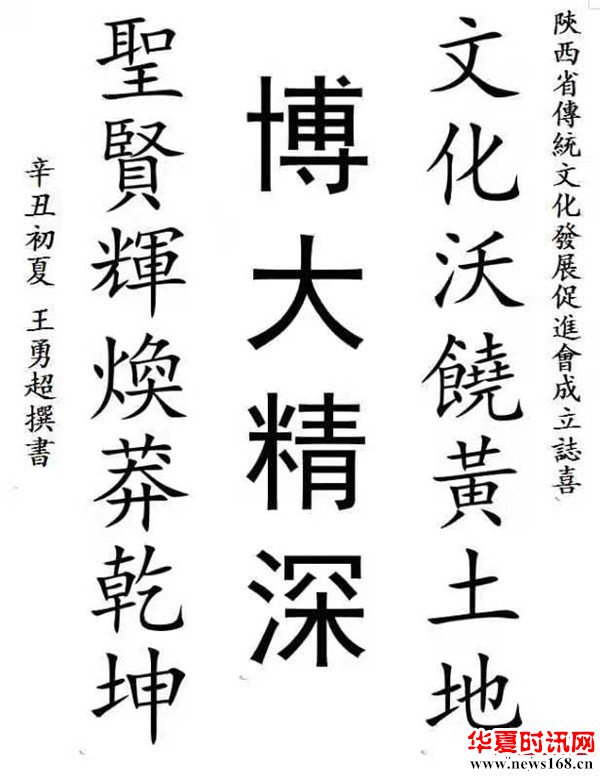 陝西省傳統文化發展促進會成立誌喜
文化沃饒黃土地
博大精深
聖賢輝煥莽乾坤
辛丑初夏 王勇超撰書
华夏时讯网
www.news168.cn